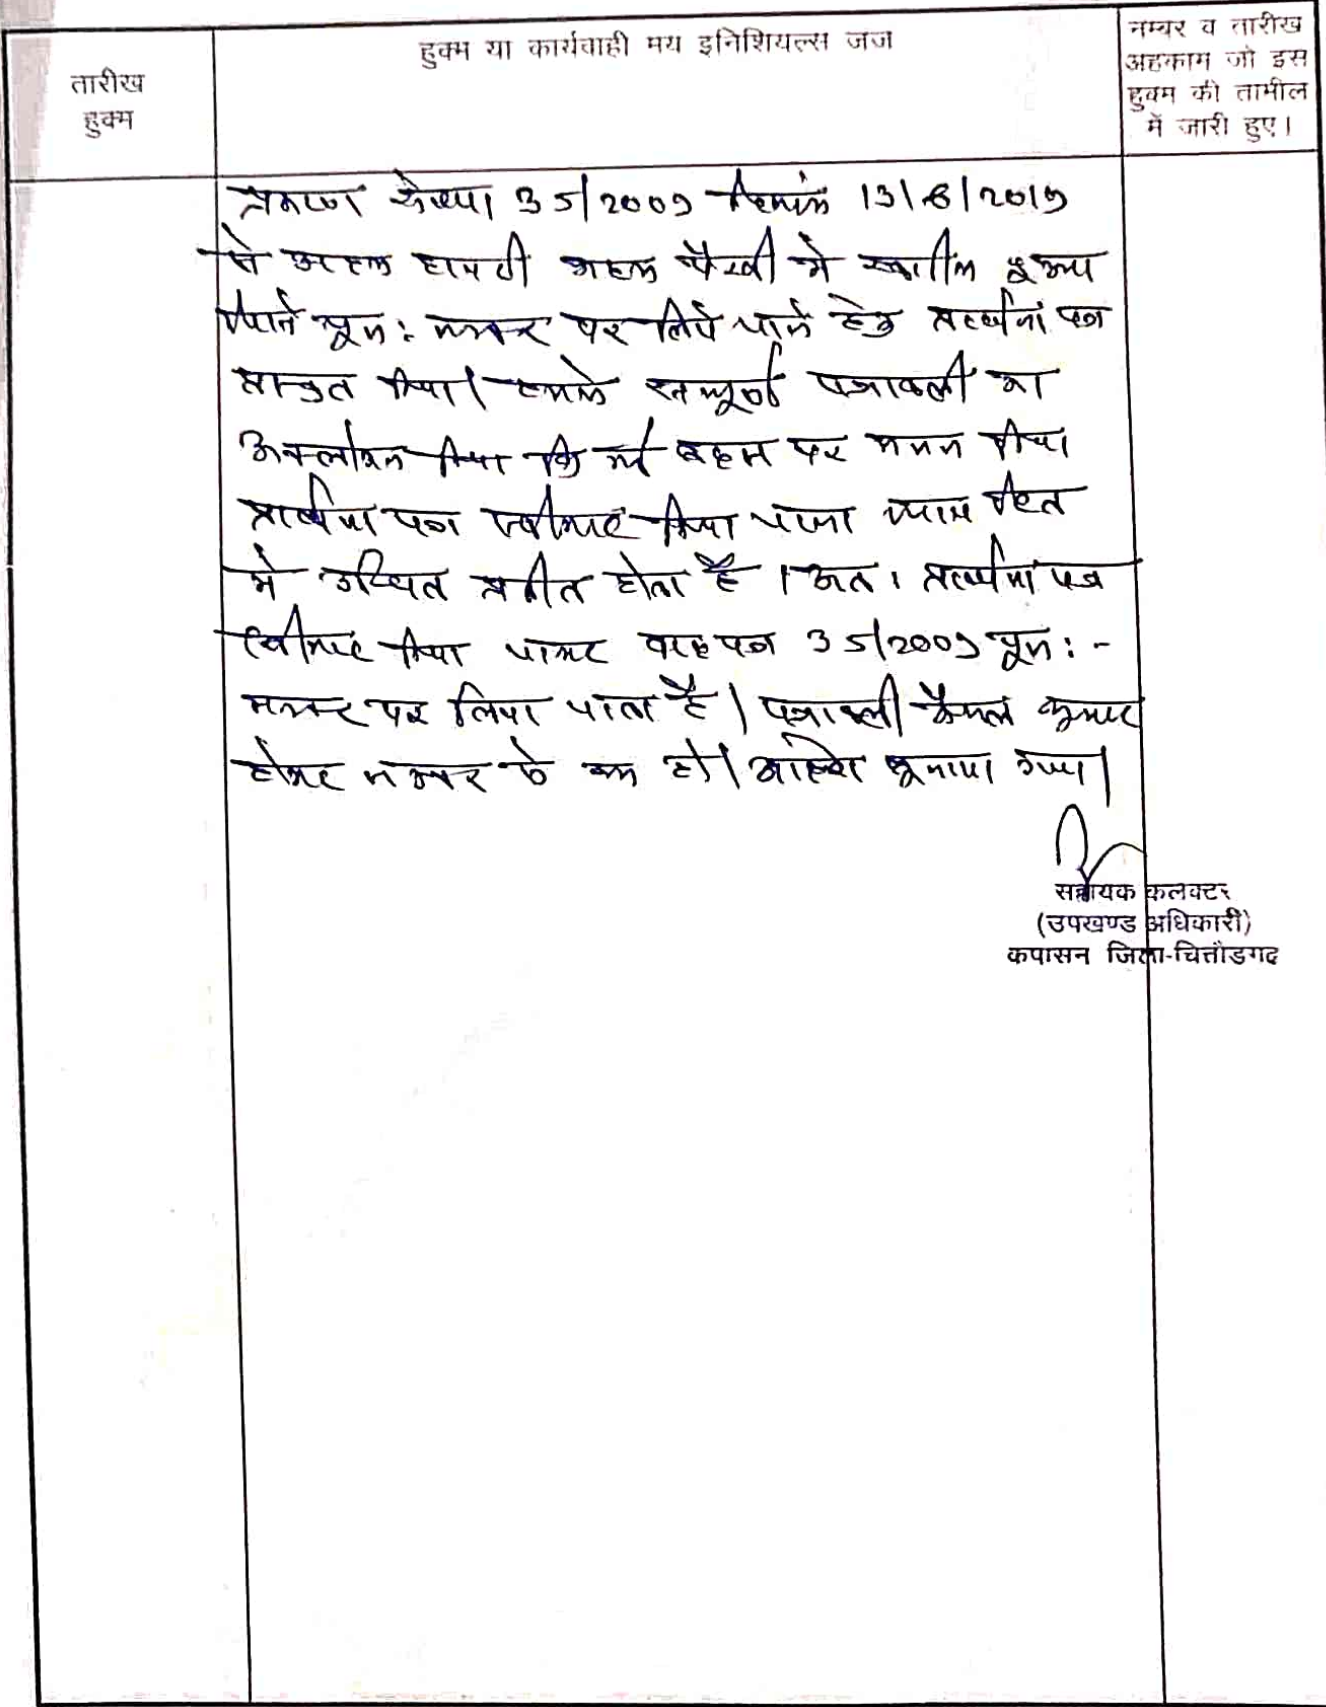 तारीख
हुक्म
हुक्म या कार्यवाही मय इनिशियल्स जज
नम्बर व तारीख
अहकाम जो इस
हुक्म की तामील
में जारी हुए।
प्रकरण संख्या 35/2009 दिनांक 13/8/2019
से अदम हाजरी अदम पैरवी मे खारीज हुआ
पुन: नम्बर पर लिये जाने हेतु प्रार्थना पत्र
प्रस्तुत किया। हमने सम्पूर्ण पत्रावली का
अवलोकन किया बहस पर मनन किया
प्रार्थना पत्र स्वीकार किया जाना न्याय हित
मे उचित प्रतीत होता है। अत: प्रार्थना पत्र
स्वीकार किया जाकर वाद पत्र 35/2009 पून: -
नम्बर पर लिया जाता है। पत्रावली फैसल शुमार
होकर नम्बर से कम हो। आदेश सुनाया गया।
सहायक कलक्टर
(उपखण्ड अधिकारी)
कपासन जिला-चित्तौडगढ